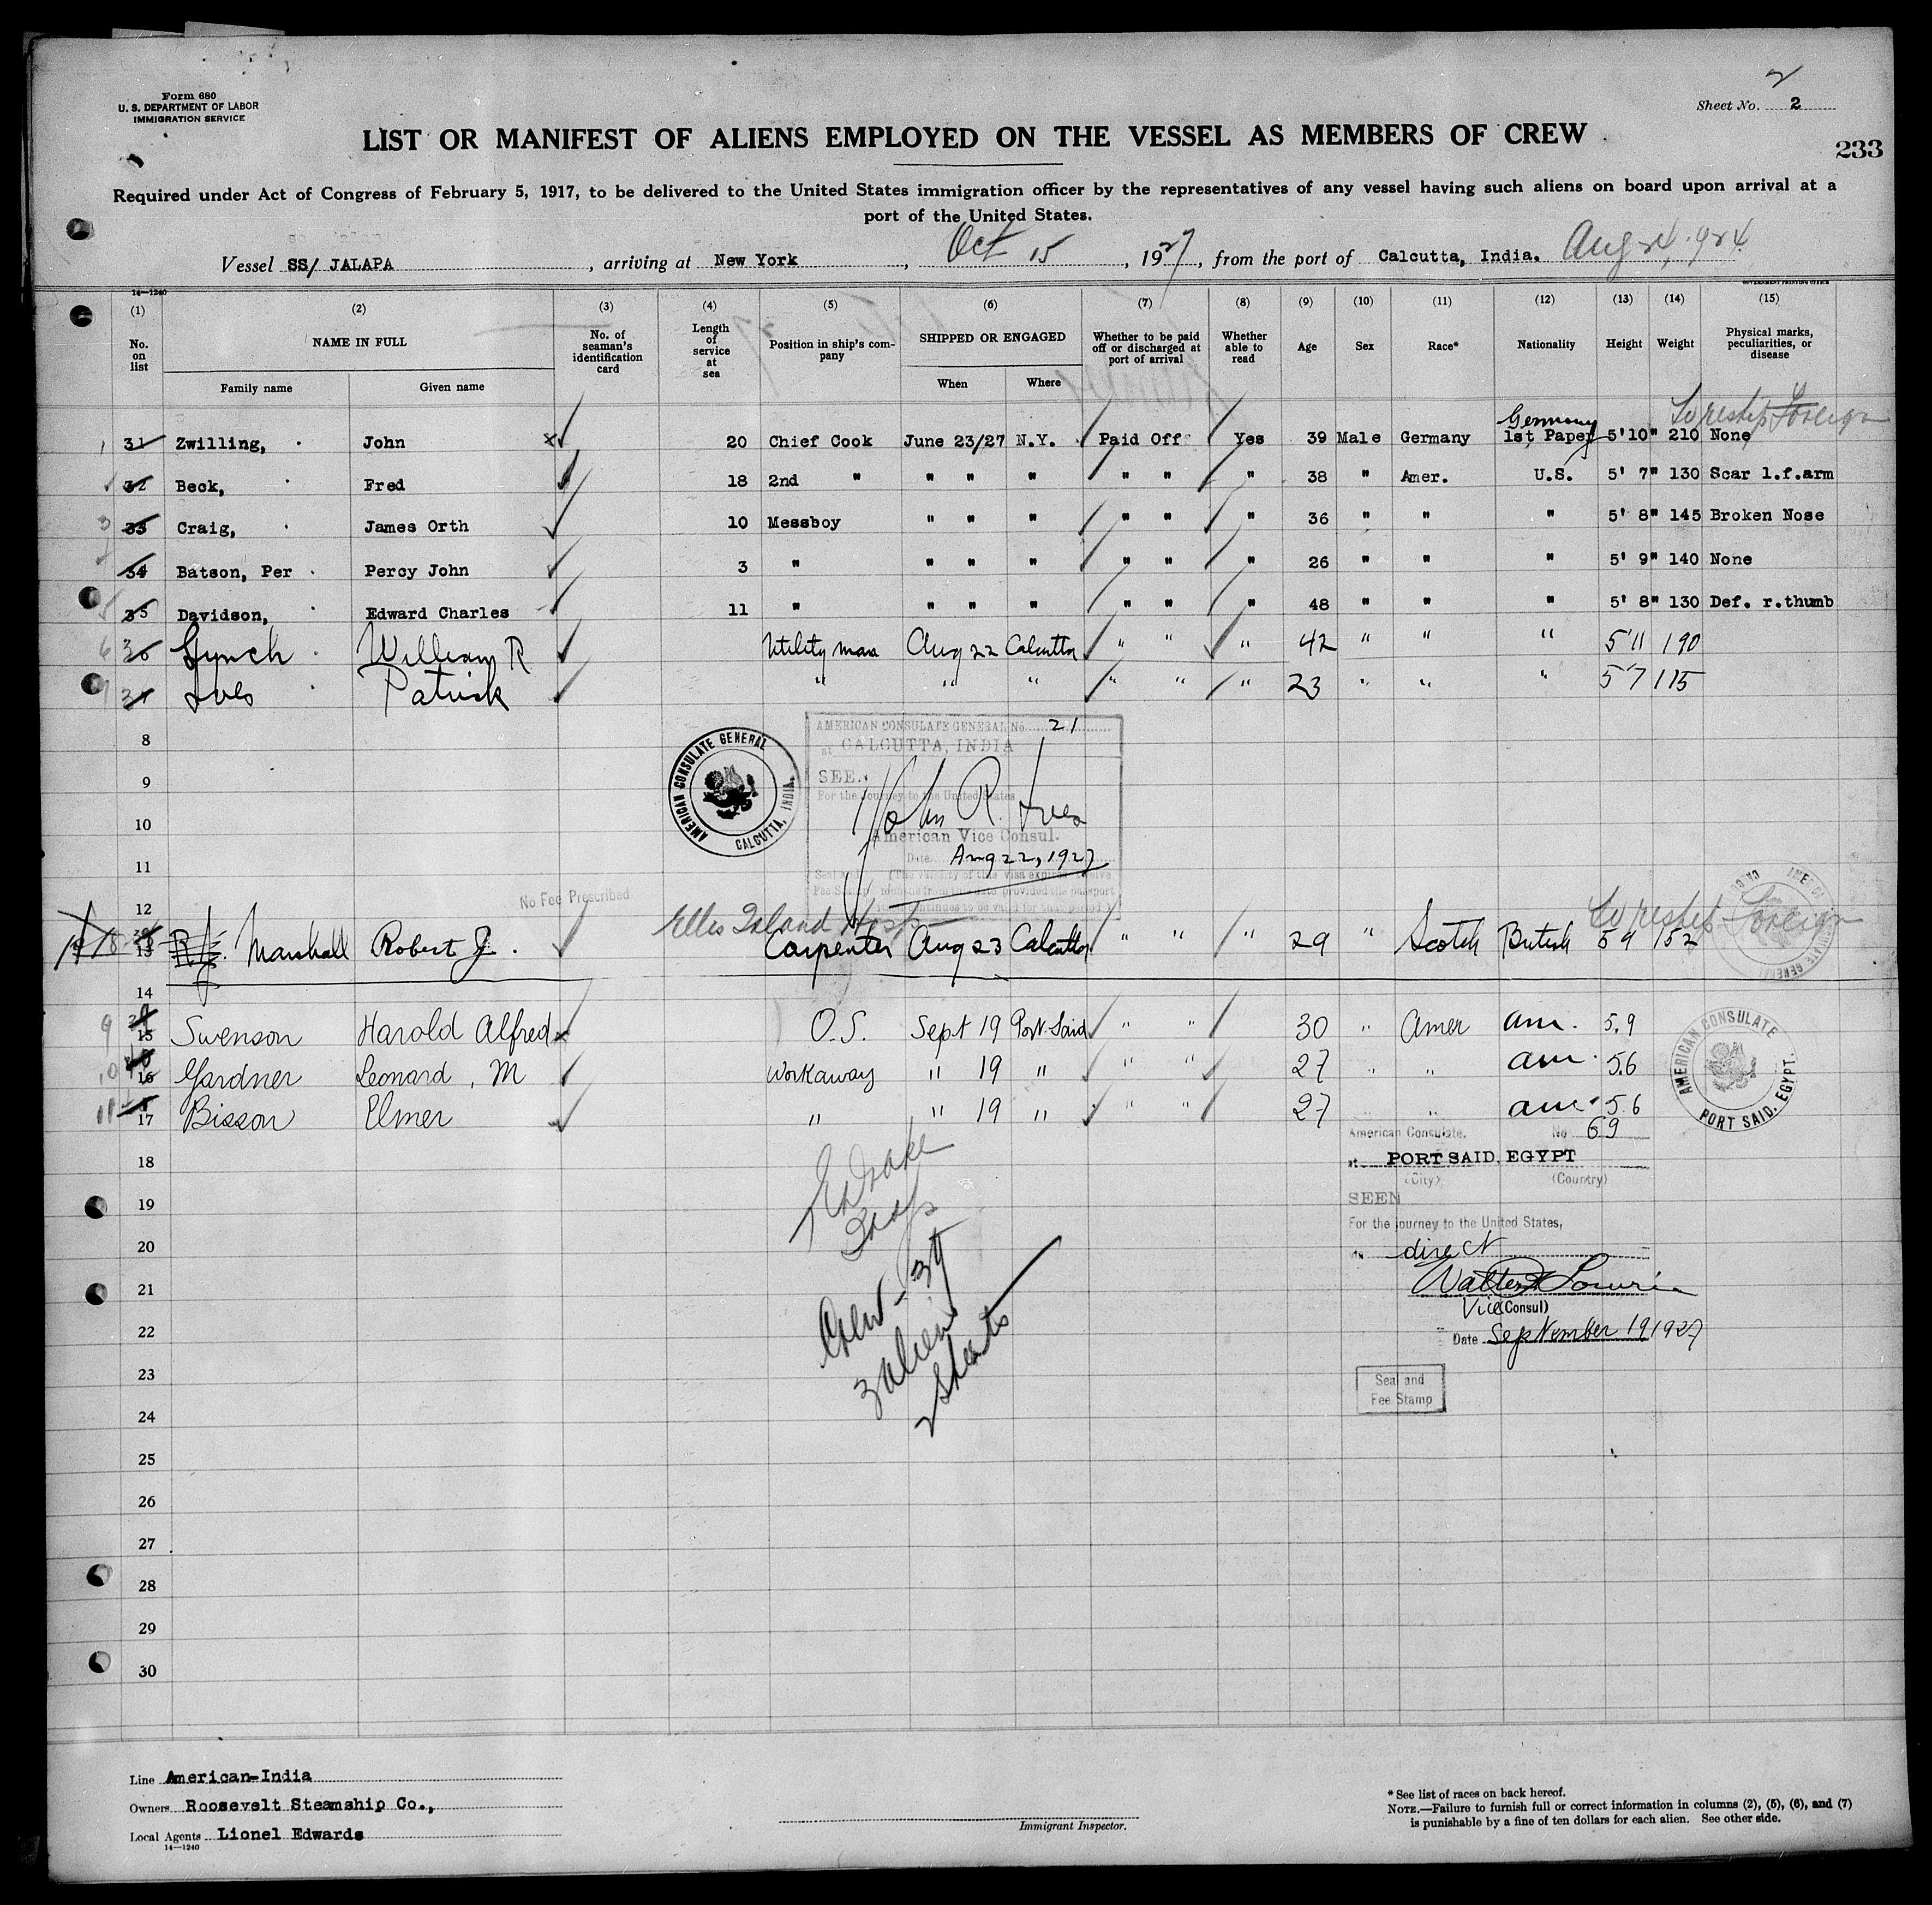 Form 680
U. S. DEPARTMENT OF LABOR
IMMIGRATION SERVICE
2
Sheet No. 2
LIST OR MANIFEST OF ALIENS EMPLOYED ON THE VESSEL AS MEMBERS OF CREW
233
Required under Act of Congress of February 5, 1917, to be delivered to the United States immigration officer by the representatives of any vessel having such aliens on board upon arrival at a
port of the United States.
Vessel SS/ JALAPA, arriving at New York, Oct 15, 1927, from the port of Calcutta, India.
14—1240
GOVERNMENT PRINTING OFFICE
(1) (2) (3) (4) (5) (6) (7) (8) (9) (10) (11) (12) (13) (14) (15)
No. on list
NAME IN FULL
Family name
Given name
No. of seaman's identification card
Length of service at sea
Position in ship's company
SHIPPED OR ENGAGED
When
Where
Whether to be paid off or discharged at port of arrival
Whether able to read
Age
Sex
Race*
Nationality
Height
Weight
Physical marks, peculiarities, or disease
Germany
1 31 Zwilling, John 20 Chief Cook June 23/27 N.Y. Paid Off Yes 39 Male Germany 1st Paper 5'10" 210 None
32 Beck, Fred 18 2nd " " " " " " " 38 " Amer. U.S. 5' 7" 130 Scar l.f.arm
3 33 Craig, James Orth 10 Messboy " " " " " " 36 " " " 5' 8" 145 Broken Nose
34 Batson, Per Percy John 3 " " " " " " " 26 " " " 5' 9" 140 None
5 35 Davidson, Edward Charles 11 " " " " " " " 48 " " " 5' 8" 130 Def. r.thumb
6 36 Lynch William R Utility man Aug 22 Calcutta " " " 42 " " " 5'11 190
Ives Patrick " " " " " " 23 " " " 5'7 115
8
9
10
11
12
AMERICAN CONSULATE GENERAL
CALCUTTA, INDIA.
AMERICAN CONSULATE GENERAL No. 21
at CALCUTTA, INDIA
SEEN
For the Journey to the United States
John R. Ives
American Vice Consul.
Date Aug 22, 1927
No Fee Prescribed
Ellis Island Hosp
13 Marshall Robert J. Carpenter Aug 23 Calcutta " " " 29 " Scotch British 5 9 152
14
9 15 Swenson Harold Alfred O.S. Sept 19 Port Said " " 30 " Amer Am. 5.9
10 16 Gardner Leonard, M Workaway " 19 " " " 27 " " am. 5.6
11 17 Bisson Elmer " " 19 " " " 27 " " am. 5.6
AMERICAN CONSULATE
PORT SAID, EGYPT.
American Consulate, No 69
at PORT SAID, EGYPT
(City) (Country)
SEEN
For the journey to the United States,
direct
Vice (Consul)
Date September 19, 1927
Seal and
Fee Stamp
Crew - 39
3 aliens
2 Sheets
18
19
20
21
22
23
24
25
26
27
28
29
30
Line American-India
Owners Roosevelt Steamship Co.,
Local Agents Lionel Edwards
14—1240
Immigrant Inspector.
* See list of races on back hereof.
NOTE.—Failure to furnish full or correct information in columns (2), (5), (6), and (7)
is punishable by a fine of ten dollars for each alien. See other side.